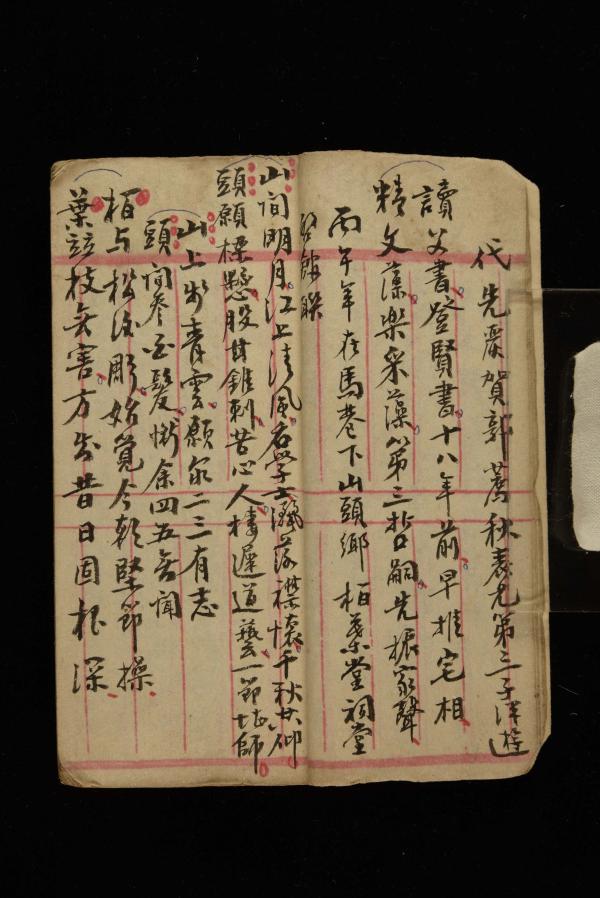 代先嚴賀郭薦秋表兄第三子泮遊
讀父書登賢書十八年前早推宅相
精文藻樂采藻第三哲嗣先振家聲
丙午年在馬巷下山頭鄉柏葉堂祠堂
啓館聯
山間明月江上清風名學士灑落襟懷千秋共仰
頭願標懸股甘錐刺苦心人棲遲道藝一節堪師
山上步青雲願家二三有志
頭間參白髮慚余四五無聞
柏与松後彫始覺今朝堅節操
葉茲枝無害方知昔日固根深